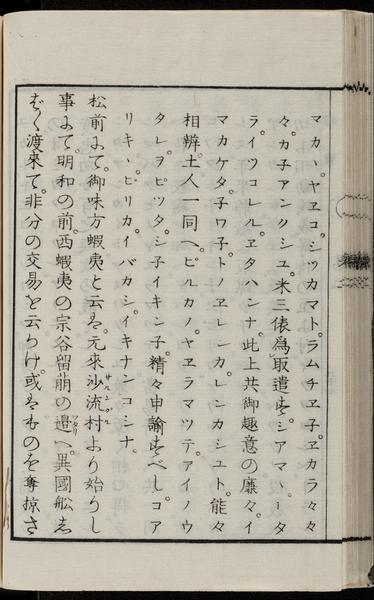 マカヽ。ヤヱコ。シツカマト。ラムチヱ子。ヱカラ々々
々。カ子アンクシユ。米三俵為取遣す。シアマヽータ
ライツコレル。ヱタハンナ。此上共御趣意の廉々。イ
マカケタ。子ワ子。トノヱレーカ。レンカシユト。能々
相辨。土人一同へ。ピルカノ。ヤヱラマツテ。アイノウ
タレ。ヲピツタ。シ子イキン子。精々申諭すべし。コア
リキヽ。ピリカ。イバカシ。イキナンコシナ。
松前にて。御味方蝦夷と云は。元來沙流村より始りし
事にて。明和の前。西蝦夷の宗谷留萠の邉へ。異國舩し
ば〱渡來て。非分の交易を云かけ。或はものを奪掠さ